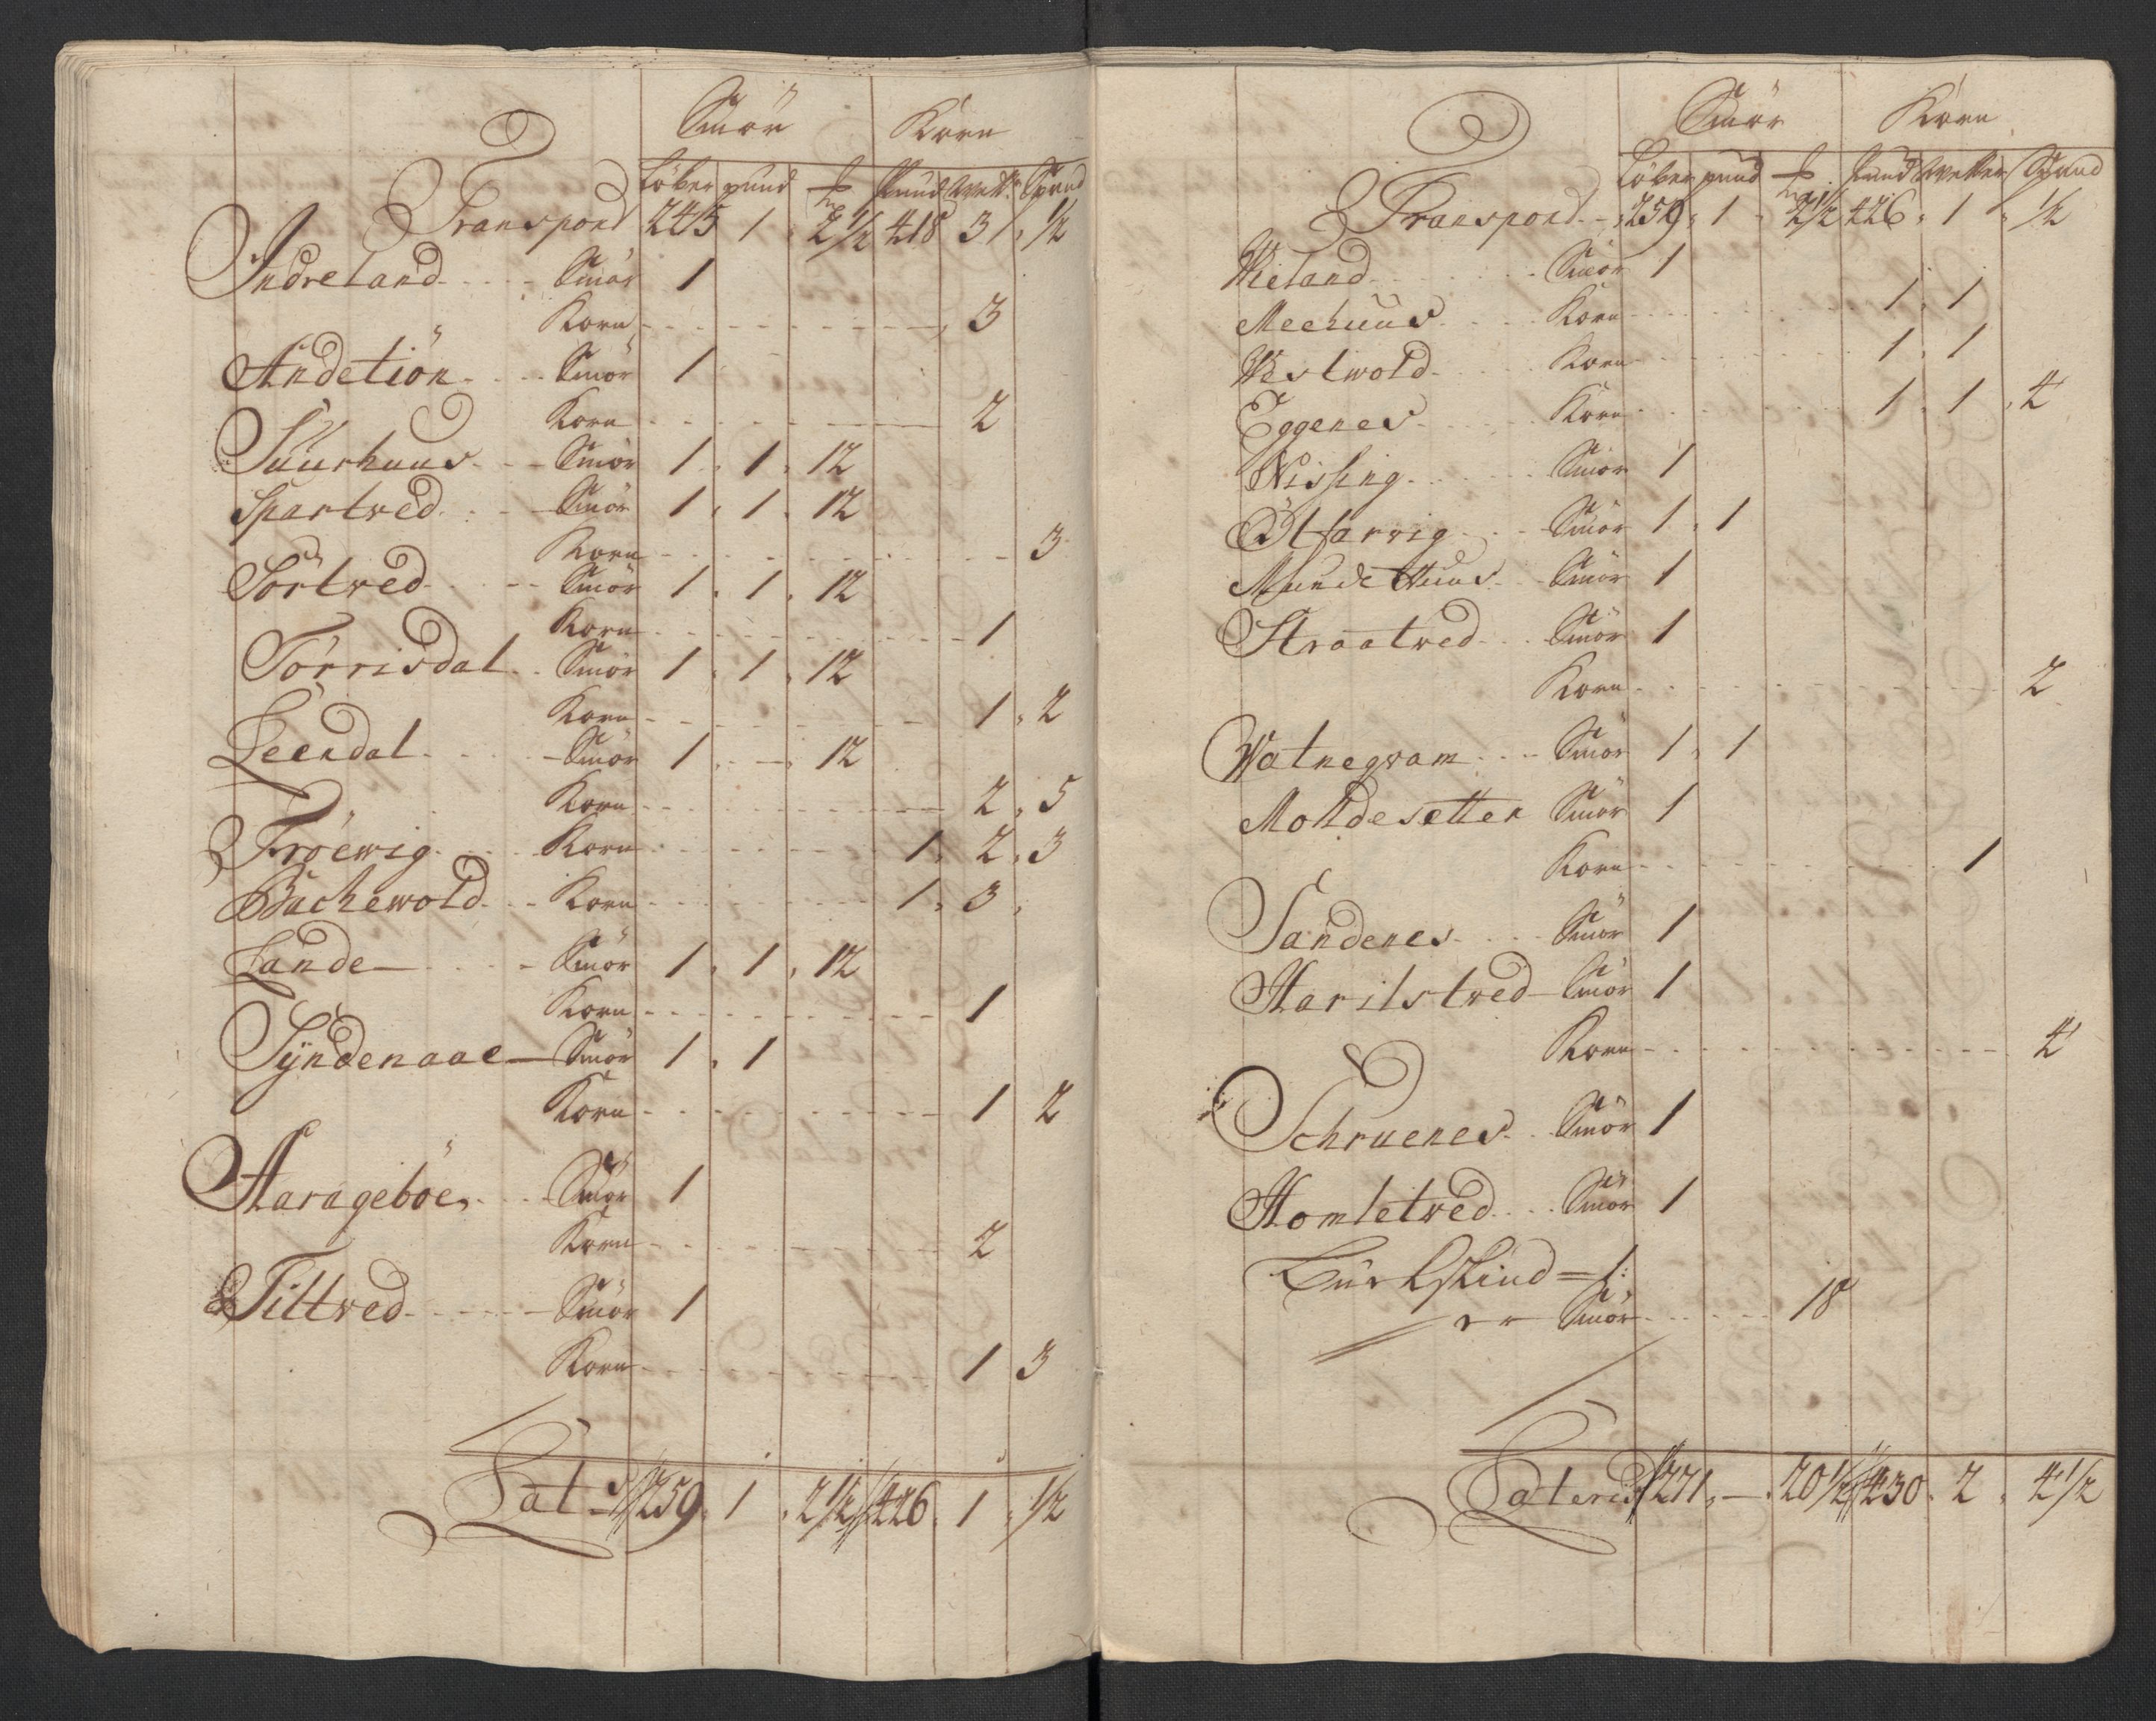 Smör Korn
Löber pund ℔ Pund Wetter Spand
Transport 245 1 2½ 418 3 ½
Indreland Smör 1
Korn 3
Andetiön Smör 1
Korn 2
Suurhuus Smör 1 1 12
Spartved Smör 1 1 12
Korn 3
Sörtved Smör 1 1 12
Korn 1
Törrisdal Smör 1 1 12
Korn 1 2
Leendal Smör 1 - 12
Korn 2 5
Fröewig Korn 1 2 3
Bachewold Korn 1 3
Lande Smör 1 1 12
Korn 1
Syndenaae Smör 1 1
Korn 1 2
Harageböe Smör 1
Korn 2
Tiltved Smör 1
Korn 1 3
Lat 259 1 2½ 426 1 ½
Smör Korn
Löber pund ℔ Pund Wetter Spand
Transport 259 1 2½ 426 1 ½
Wieland Smör 1
Meehuus Korn 1 1
Westwold Korn 1 1
Eggenes Korn 1 1 4
Nissing Smör 1
Otfarvig Smör 1 1
Munde Huus Smör 1
Straatved Smör 1
Korn 2
Watnegvam Smör 1 1
Moldesetter Smör 1
Korn 1
Sandenes Smör 1
Harilstved Smör 1
Korn 4
Schruenes Smör 1
Homletved Smör 1
er Smör 18
Lateris 271 - 20½ 430 2 4½